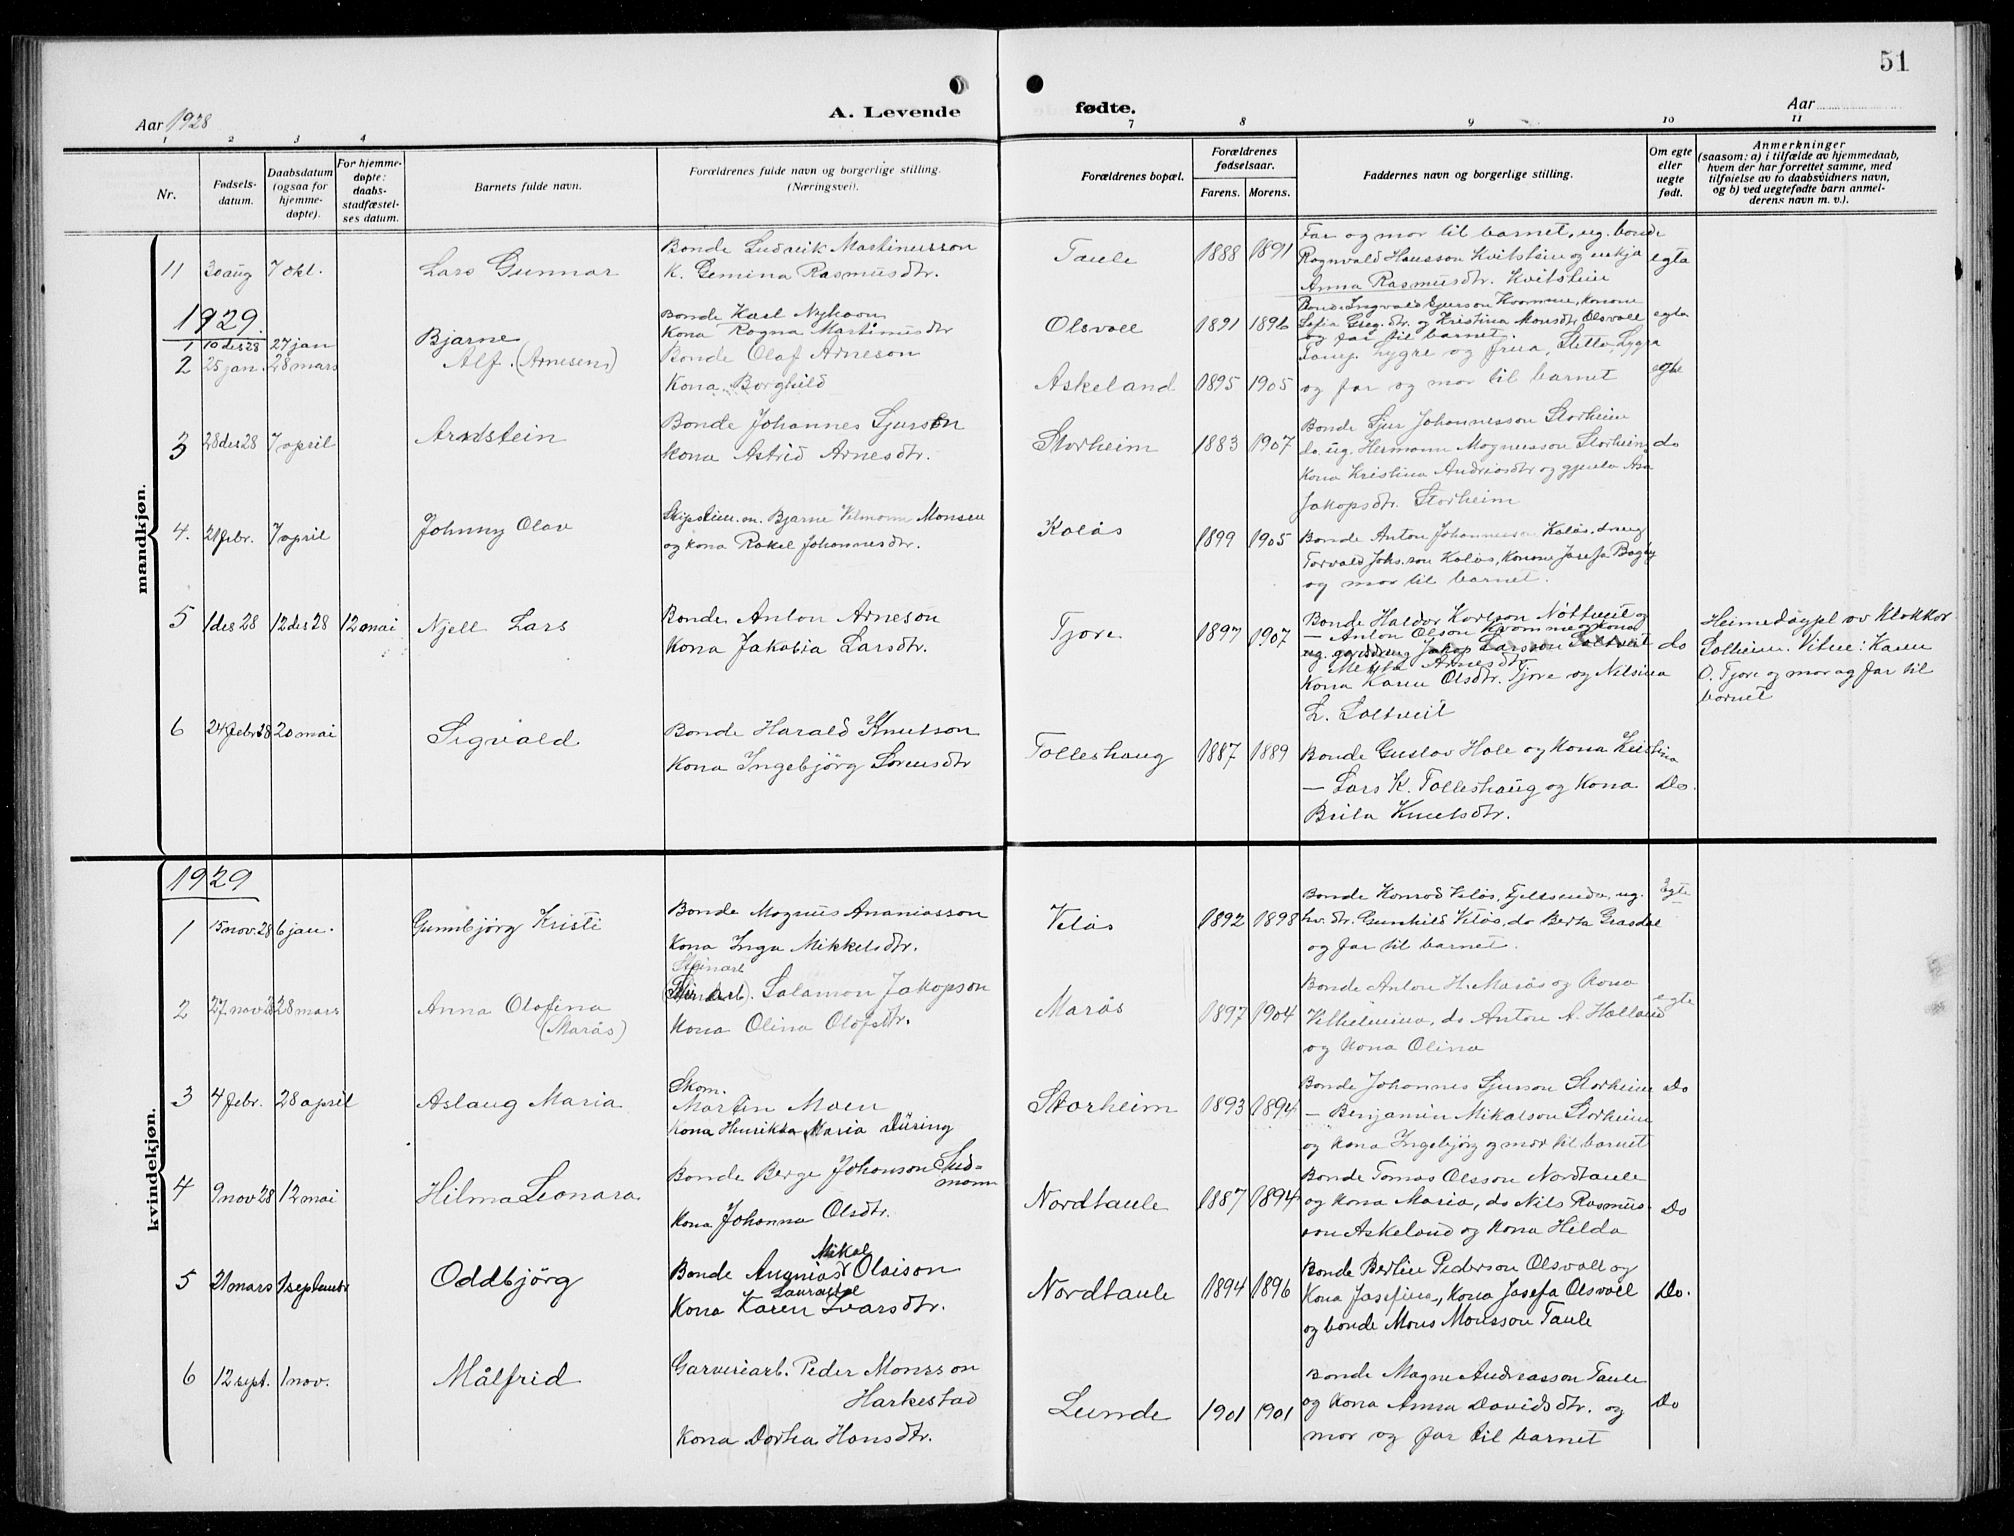 51
Aar 1928
A. Levende
fødte.
Aar
1 2 3 4 7 8 9 10 11
Nr.
Fødsels-
datum.
Daabsdatum
(ogsaa for
hjemme-
døpte).
For hjemme-
døpte:
daabs-
stadfæstel-
ses datum.
Barnets fulde navn.
Forældrenes fulde navn og borgerlige stilling.
(Næringsvei).
Forældrenes bopæl.
Forældrenes
fødselsaar.
Farens. Morens.
Faddernes navn og borgerlige stilling.
Om egte
eller
uegte
født.
Anmerkninger
(saasom: a) i tilfælde av hjemmedaab,
hvem der har forrettet samme, med
tilføielse av to daabsvidners navn,
og b) ved uegtefødte barn anmel-
derens navn m. v.).
mandkjøn.
11 30 aug 7 okt. Lars Gunnar
Bonde Ludvik Martinusson
K. Gemina Rasmusdtr.
Taule 1888 1891
Far og mor til barnet, ug. bonde
Rognvald Hansson Kvitstein og enkja
Anna Rasmusdtr. Kvitstein
egta
1929.
1 10 des 28 27 jan Bjarne
Bonde Karl Nyhavn
Kona Rogna Martinusdtr
Olsvoll 1891 1896
Bonde Ingvald Sjurson Kvamme, konone
Sofia Greg.dtr. og Kristina Monsdtr Olsvoll
og far til barnet.
egta
2 25 jan. 28 mars Alf. (Arnesen)
Bonde Olaf Arneson
Kona Borghild
Askeland 1895 1905
Lygre og frua, Lygra
og far og mor til barnet
egte
3 28 des 28 7 april Arnstein
Bonde Johannes Sjurson
Kona Astrid Arnesdtr.
Storheim 1883 1907
Bonde Sjur Johannesson Storheim
do. ug. Hermann Magnusson Storheim
Kona Kristina Andreasdtr og gjenta Asa
Jakopsdtr. Storheim
do
4. 21 febr. 7 april Johnny Olav
Bjarne Vilmann Monsen
og kona Rakel Johannesdtr.
Kolås 1899 1905
Bonde Anton Johannesson Kolås, dreng
Torvald Johs.son Kolås, Konone Josefa
og mor til barnet.
5 1 des 28 12 des 28 12 mai Njell Lars
Bonde Anton Arneson
Kona Jakobia Larsdtr.
Tjore 1897 1907
Bonde Haldor Karlson Nöttveit og
— Anton Olson Kvamme og kona
ug. gardsdreng Jakop Larsson Soltveit
Arnesdtr
Kona Karen Olsdtr. Tjore og Nilsina
L. Soltveit
do
Heimedøypt av Klokkar
Solheim. Vitne: Karen
O. Tjore og mor og far til
barnet
6 24 febr 28 20 mai Sigvald
Bonde Harald Knutson
Kona Ingebjörg Sörensdtr
Tolleshaug 1887 1889
Bonde Gustav Hole og Kona Kristina
— Lars K. Tolleshaug og Kona
Brita Knutsdtr.
Do.
kvindekjøn.
1929
1 15 nov. 28 6 jan. Gunnbjörg Kristi
Bonde Magnus Ananiasson
Kona Inga Mikkelsdtr.
Vetås 1892 1898
Bonde Konrad Vetås, Fjellsende, ug.
hv. dtr. Gunhild Vetås, do Berta Grasdal
og far til barnet.
Egte
2 27 nov 28 28 mars Anna Olafina
(Marås)
Steinarb
Salamon Jakopson
Kona Olina Olafsdtr.
Marås 1897 1904
Bonde Anton H. Marås og Kona
Vilhelmina, do Anton A. Halland
og Kona Olina
egte
3 4 febr. 28 april Aslaug Maria
Skom.
Martin Moen
Kona Henrikka Maria Düring
Storheim 1893 1894
Bonde Johannes Sjurson Storheim
— Benjamin Mikalson Storheim
og Kona Ingebjörg og mor til barnet
Do
4 9 nov 28 12 mai Hilma Leonara
Bonde Berge Johanson Sud-
mann
Kona Johanna Olsdtr.
Nordtaule 1887 1894
Bonde Tomas Olsson Nordtaule
og Kona Maria, do Nils Rasmus-
son Askeland og Kona Helda
Do
5 21 mars 1 september Oddbjörg
Mikal
Bonde Ananias Olaison
Kona Karen Ivarsdtr.
Nordtaule 1894 1896
Bonde Bertin Pederson Olsvoll og
Kona Josefina, Kona Josefa Olsvoll
og bonde Mons Monsson Taule
Do.
6 12 sept. 1 nov. Målfrid
Garveriarb. Peder Monsson
Harkestad
Kona Dortea Hansdtr.
Lunde 1901 1901
Bonde Magne Andreasson Taule
og Kona Anna Davidsdtr. og
mor og far til barnet
Do